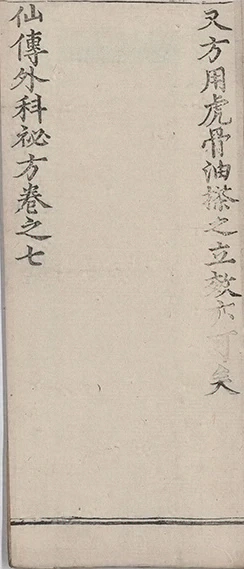 又方用虎骨油搽之立效亦可矣
仙傳外科祕方卷之七